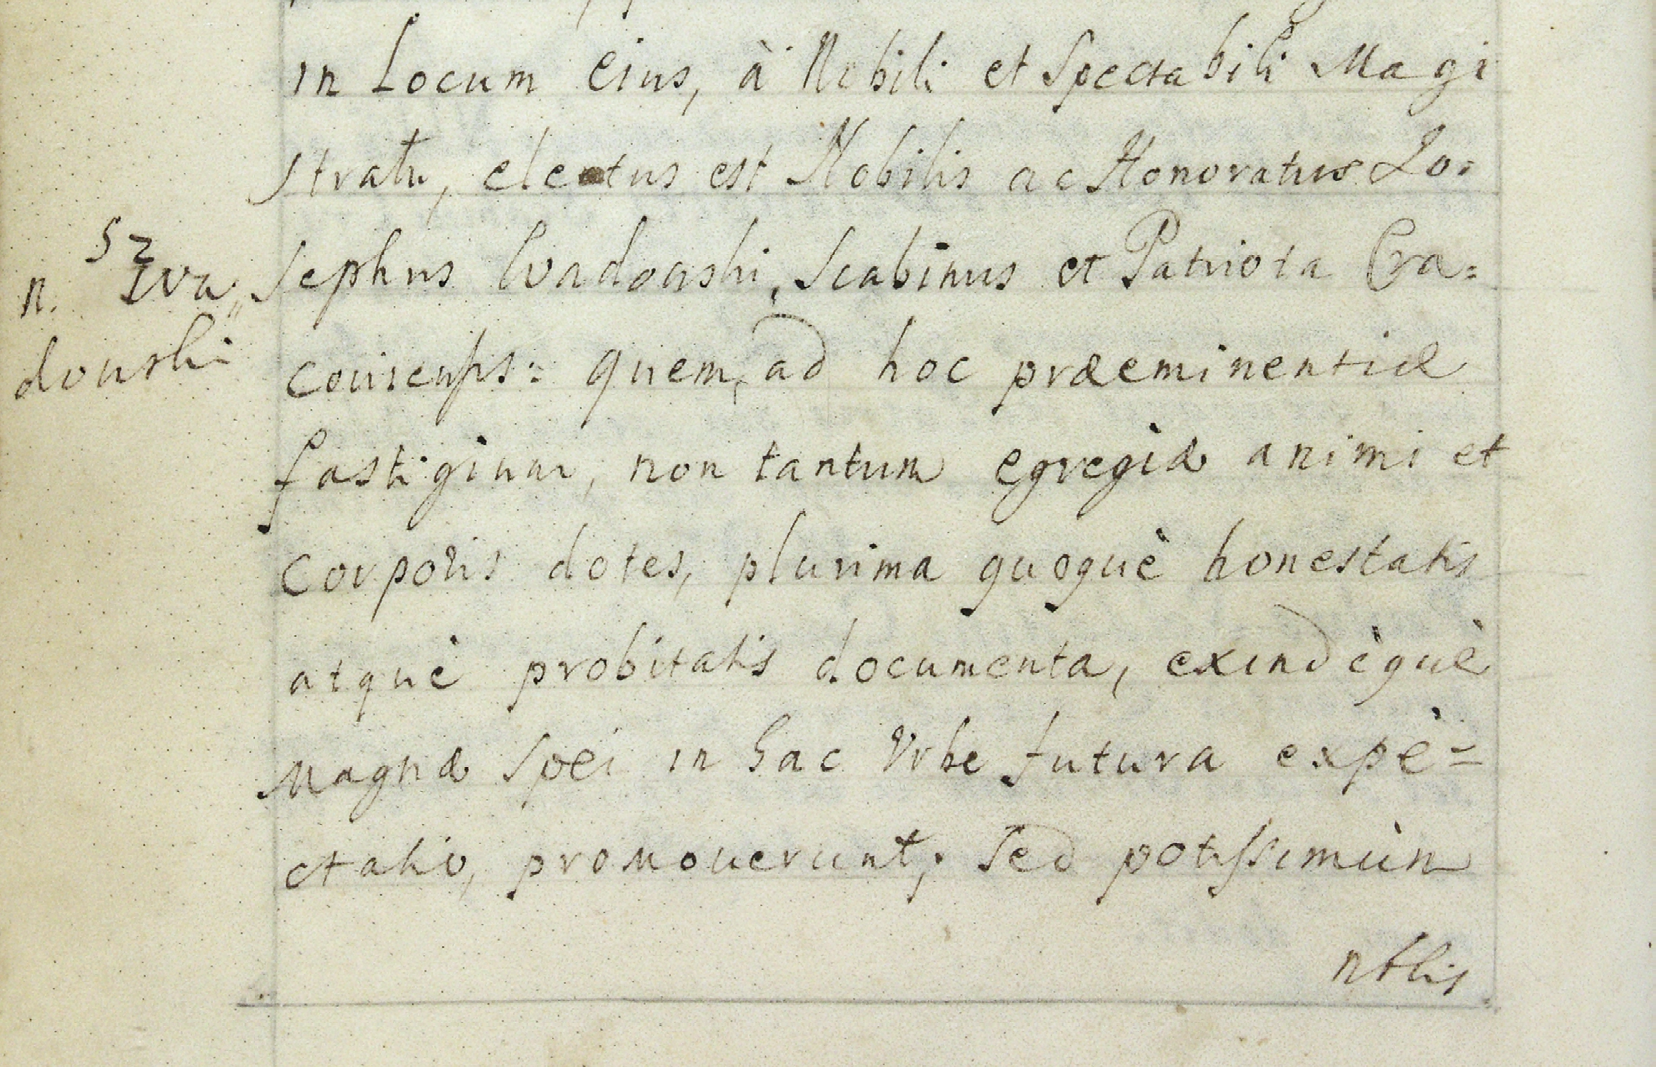 in Locum Eius, à Nobili et Spectabili Magi
stratu, electus est Nobilis ac Honoratus Jo=
52
n. Wa„
dowski
sephus Wadowski, Scabinus et Patriota Cra=
coviensis: quem, ad hoc præeminentiæ
fastigium, non tantum egregiæ animi et
corporis dotes, plurima quoquè honestatis
atquè probitatis documenta, exindèquè
magnæ spei in hac Urbe futura expè=
ctatio, promouerunt; sed potissimùm